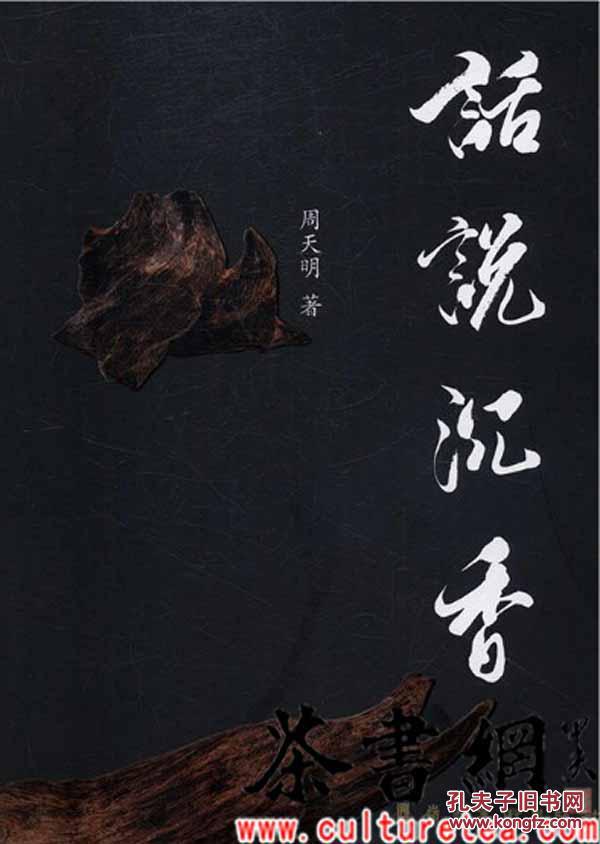 話說沉香
周天明 著
茶書網
孔夫子旧书网
www.kongfz.com
www.culturetea.com